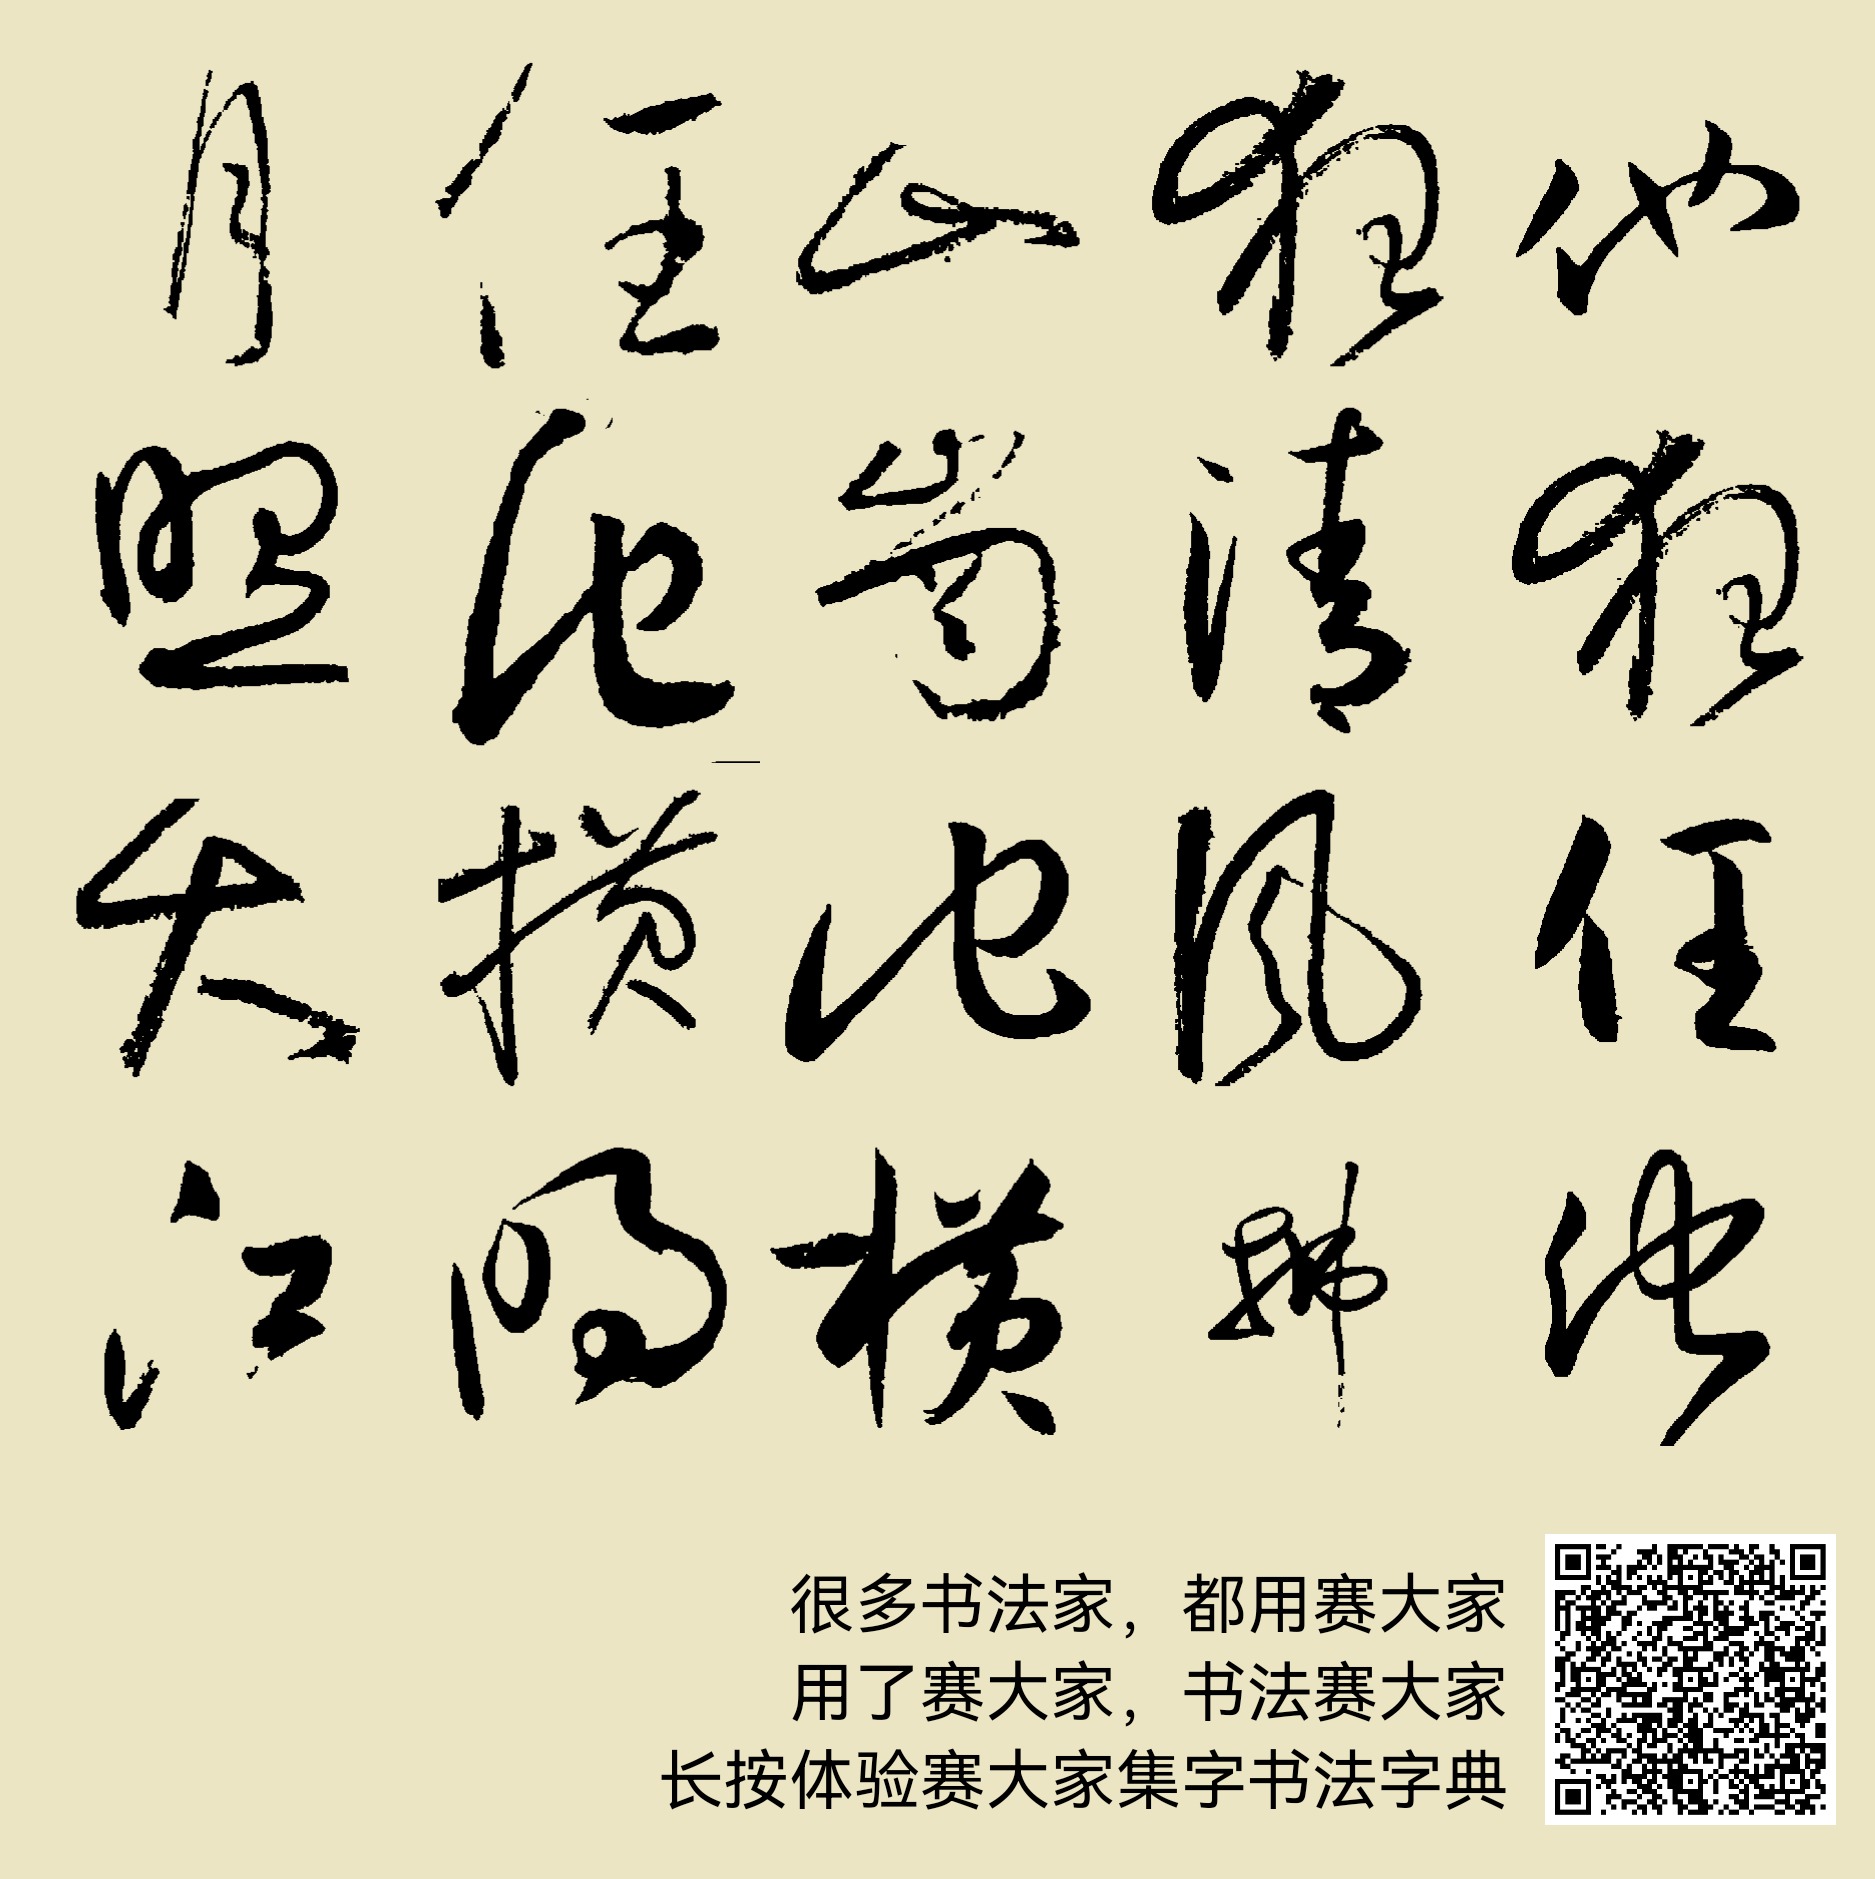 他狂任他
狂清风拂
山岗他横
任他横明
月照大江
很多书法家，都用赛大家
用了赛大家，书法赛大家
长按体验赛大家集字书法字典